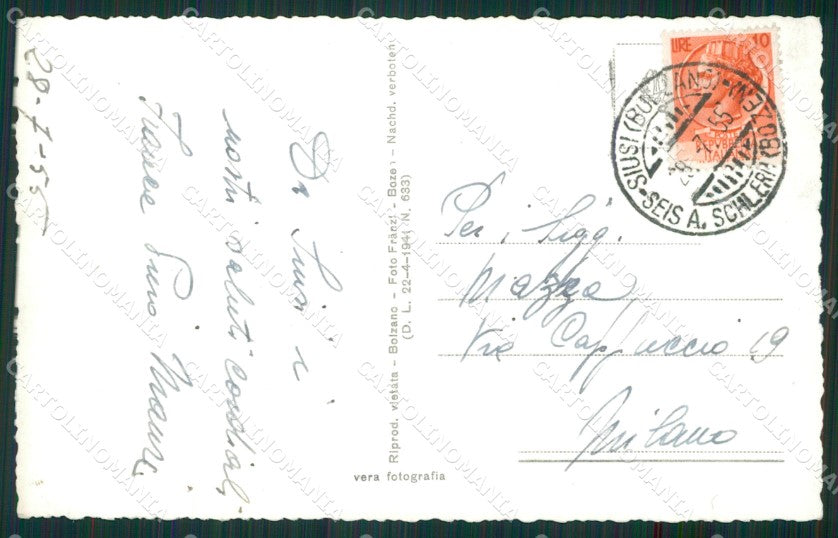 28-7-55
Da Siusi i
nostri saluti cordiali
Franca
Riprod. vietata - Bolzano - Foto Fränzl - Bozen - Nachd. verboten
(D. L. 22-4-1941 N. 633)
vera fotografia
LIRE 10
SIUSI (BOLZANO)
28.7.55
SEIS A. SCHLERN (BOZEN)
Per i Sigg.
Mazza
Via Cappuccio 19
Milano
CARTOLINOMANIA